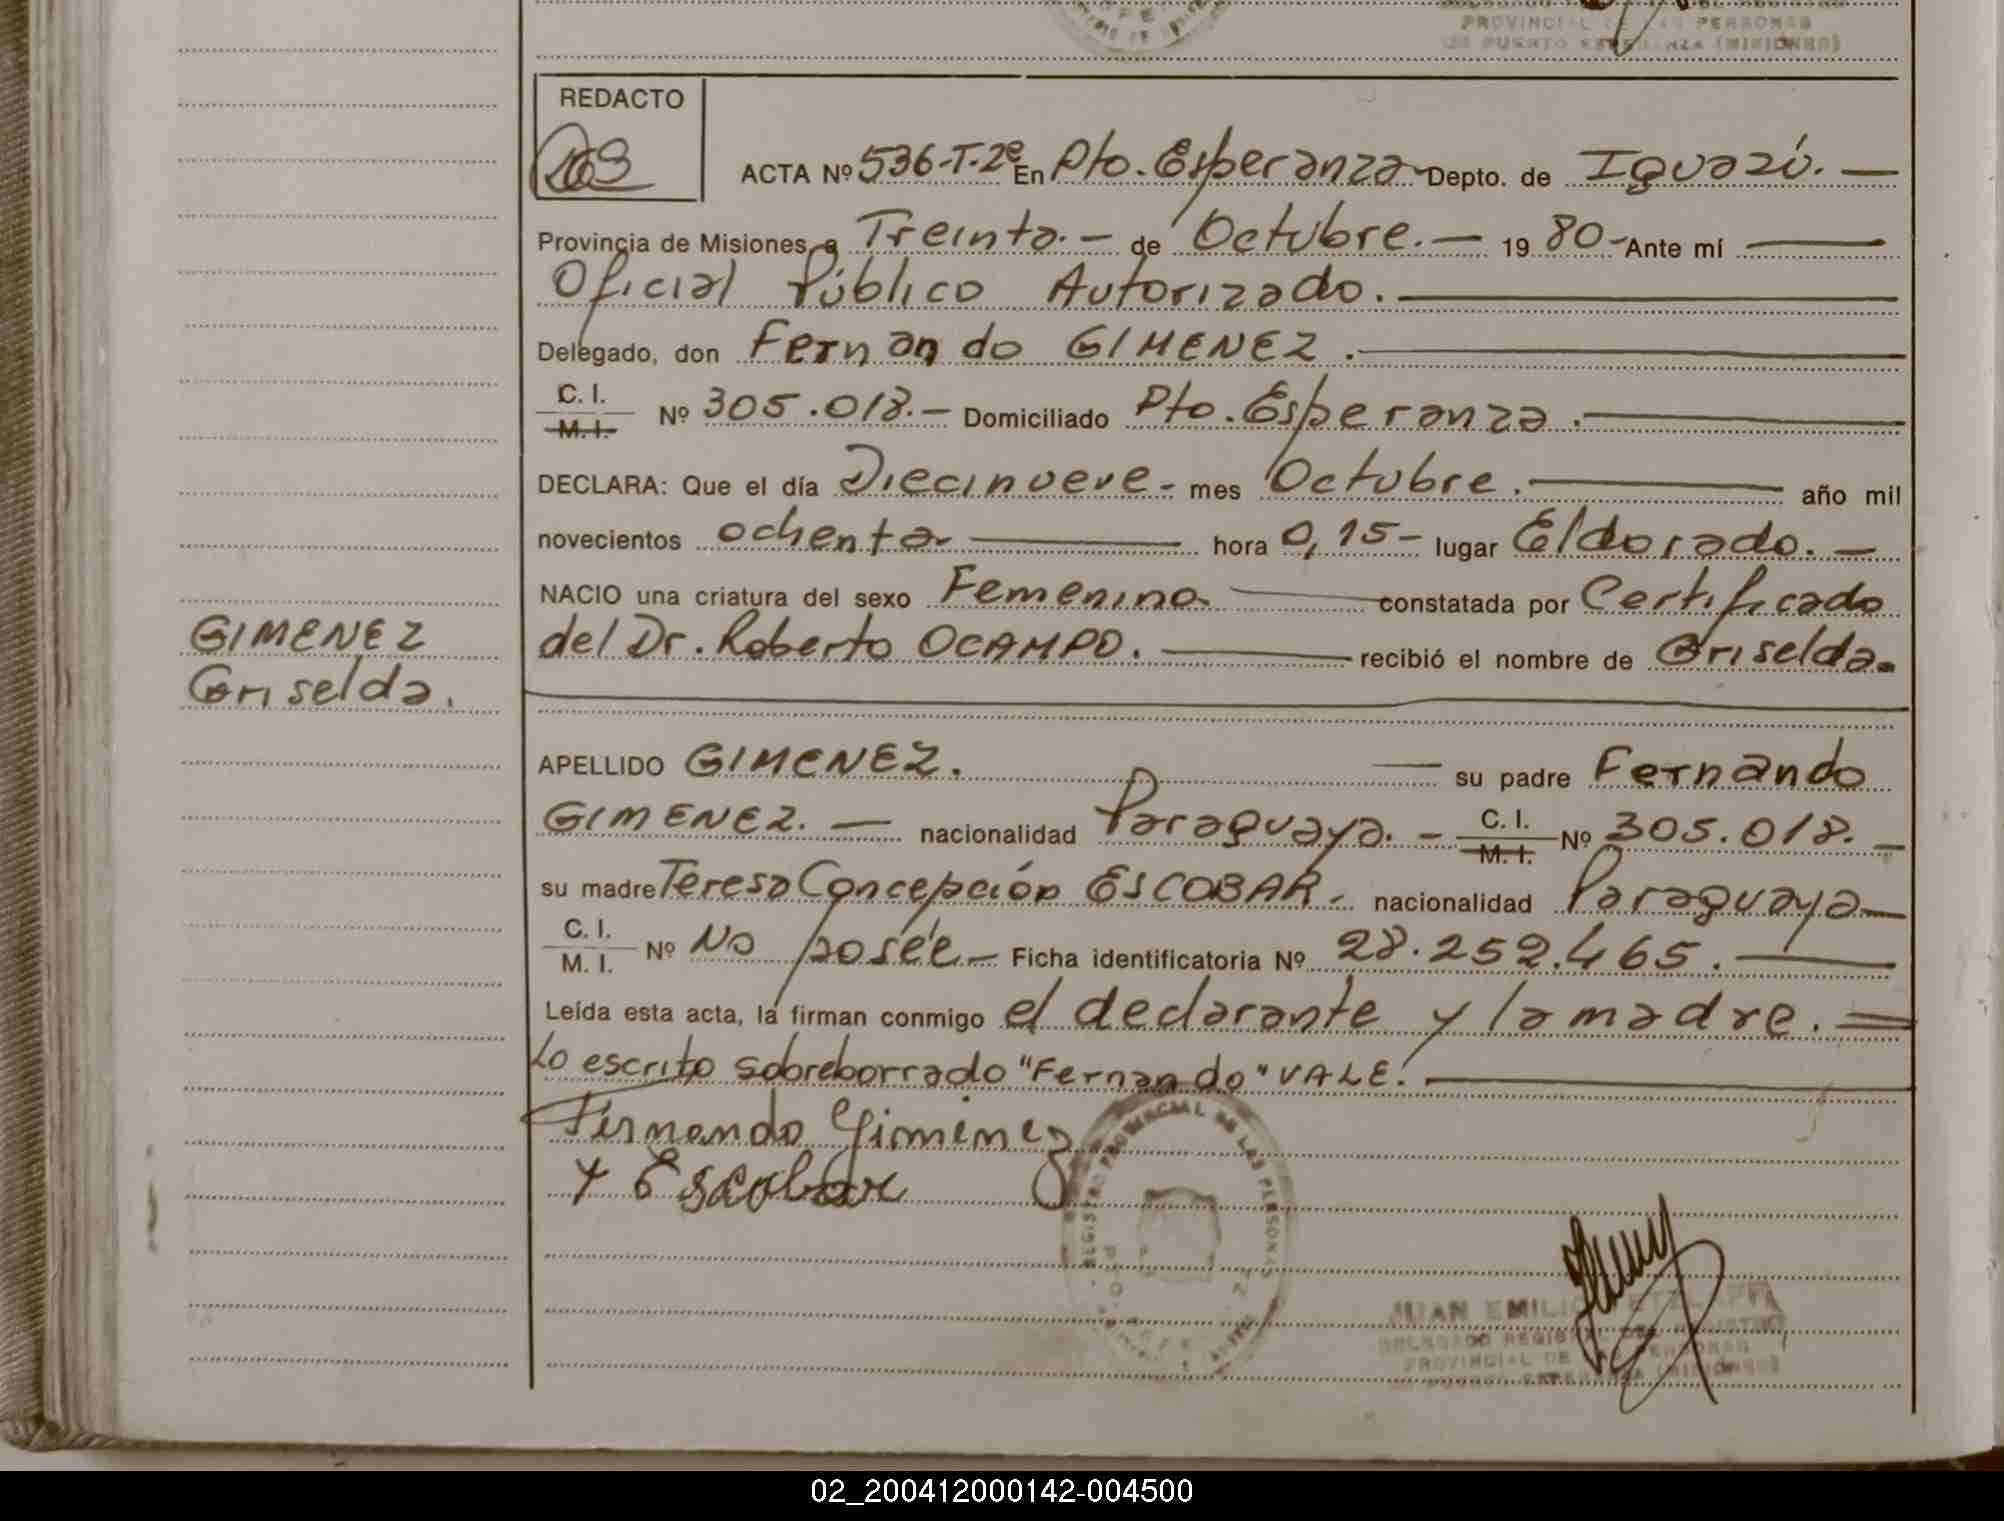 PROVINCIAL DE LAS PERSONAS
DE PUERTO ESPERANZA (MISIONES)
REDACTO
ACTA Nº 536-T-2º En Pto. Esperanza Depto. de Iguazú. —
Provincia de Misiones, a Treinta. — de Octubre. — 19 80 - Ante mí —
Oficial Público Autorizado. —
Delegado, don Fernando GIMENEZ. —
C. I.
M. I. Nº 305.018. — Domiciliado Pto. Esperanza. —
DECLARA: Que el día Diecinueve - mes Octubre. — año mil
novecientos ochenta — hora 0,15 - lugar Eldorado. —
NACIO una criatura del sexo Femenino — constatada por Certificado
del Dr. Roberto OCAMPO. — recibió el nombre de Griselda.
GIMENEZ
Griselda.
APELLIDO GIMENEZ. — su padre Fernando
GIMENEZ. — nacionalidad Paraguaya. - C. I.
M. I. Nº 305.018. —
su madre Teresa Concepción ESCOBAR. - nacionalidad Paraguaya —
C. I.
M. I. Nº No poseé — Ficha identificatoria Nº 28.252.465. —
Leída esta acta, la firman conmigo el declarante y la madre. =
Lo escrito sobreborrado "Fernando" VALE. —
Fernando Gimenez
Escobar
REGISTRO PROVINCIAL DE LAS PERSONAS
JUAN EMILIO
DELEGADO REGISTRO
PROVINCIAL DE LAS PERSONAS
DE PUERTO ESPERANZA (MISIONES)
02_200412000142-004500